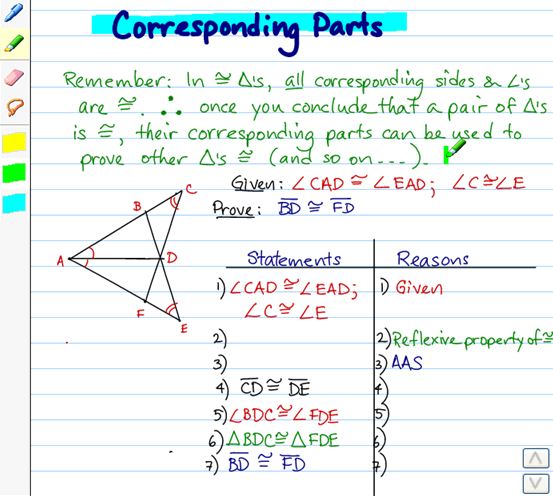 Corresponding Parts
Remember: In ≅ Δ's, all corresponding sides & ∠'s
are ≅. ∴ once you conclude that a pair of Δ's
is ≅, their corresponding parts can be used to
prove other Δ's ≅ (and so on...).
Given: ∠CAD ≅ ∠EAD; ∠C≅∠E
Prove: B̅D̅ ≅ F̅D̅
C
B
A
D
F
E
Statements Reasons
1) ∠CAD ≅ ∠EAD; 1) Given
∠C ≅ ∠E
2) 2) Reflexive property of ≅
3) 3) AAS
4) C̅D̅ ≅ D̅E̅ 4)
5) ∠BDC ≅ ∠FDE 5)
6) ΔBDC ≅ ΔFDE 6)
7) B̅D̅ ≅ F̅D̅ 7)